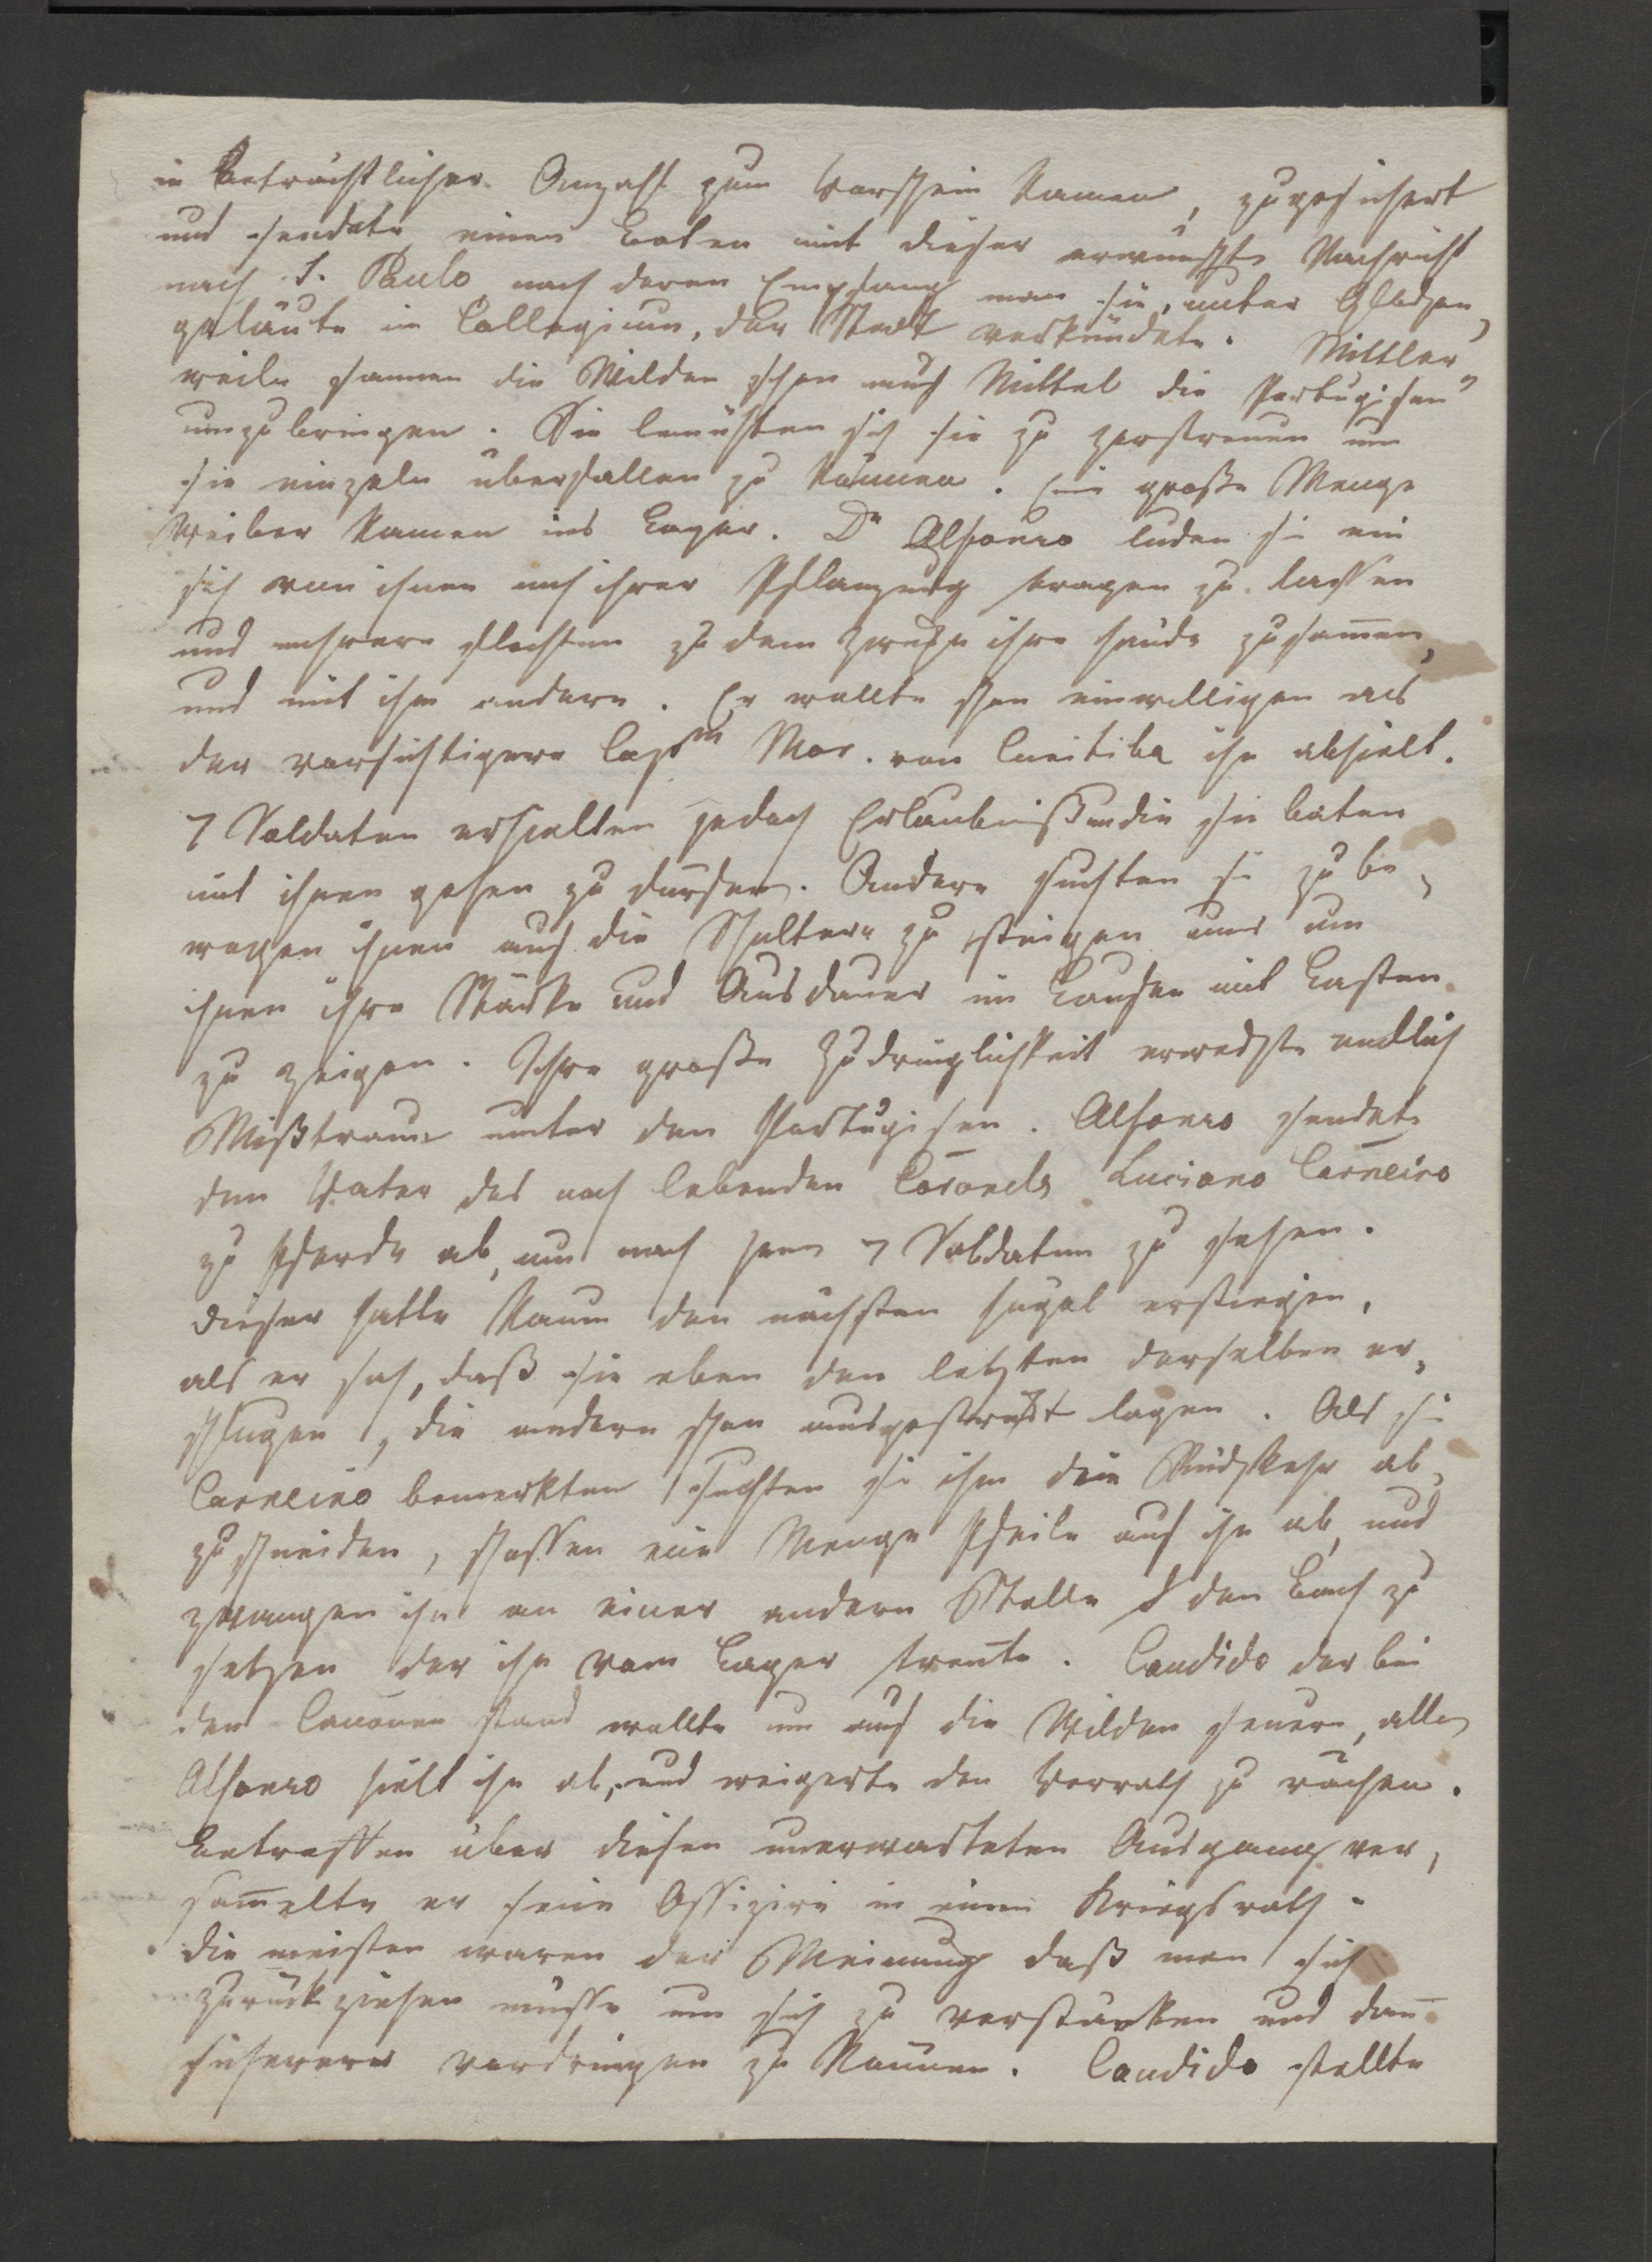 in beträchtlicher Anzahl zum Vorschein kamen, zugesichert
und sendete einen Boten mit dieser erwünschten Nachricht
nach S. Paulo nach deren Empfang man sie, unter Glocken-
geläute im Collegium, der Stadt verkündete. Mittler-
weile sannen die Wilden schon auf Mittel die Portugisen
umzubringen. Sie bemühten sich sie zu zerstreuen um
sie einzeln überfallen zu können. Eine große Menge
Weiber kamen ins Lager. Dn Alfonso luden sie ein
sich von ihnen nach ihrer Pflanzung tragen zu lassen
und mehrere flochten zu dem Zwecke ihre Hände zusam̄en,
und mit ihm andere. Er wollte schon einwilligen als
der vorsichtigere Captm Mor. von Curitiba ihn abhielt.
7 Soldaten erhielten jedoch Erlaubniß um die sie baten
mit ihnen gehen zu dürfen. Andere suchten sie zu be-
wegen ihnen auf die Schultern zu steigen um
ihnen ihre Stärke und Ausdauer im Laufen mit Lasten
zu zeigen. Ihre große Zudringlichkeit erweckte endlich
Mißtraun unter den Portugisen. Alfonso sendete
den Vater des noch lebenden Coronels Luciano Carneiro
zu Pferde ab, um nach jenen 7 Soldaten zu sehen.
Dieser hatte kaum den nächsten Hügel erstiegen,
als er sah, daß sie eben den letzten derselben er-
schlugen, die andern schon ausgestreckt lagen. Als sie
Carneiro bemerkten suchten sie ihm die Rückkehr ab-
zuschneiden, schossen eine Menge Pfeile auf ihn ab, und
zwangen ihn an einer andern Stelle den Bach zu
setzen der ihn vom Lager trente. Candido der bei
den Canonen stand wollte nun auf die Wilden feuern, allein
Alfonso hielt ihn ab, und weigerte den Verrath zu rächen.
Betroffen über diesen unerwarteten Ausgang ver-
sam̄elte er seine Offiziere in einen Kriegsrath.
Die meisten waren der Meinung daß man sich
zurückziehen müsse um sich zu verstärken und dan̄
sicherer vordringen zu können. Candido stellte